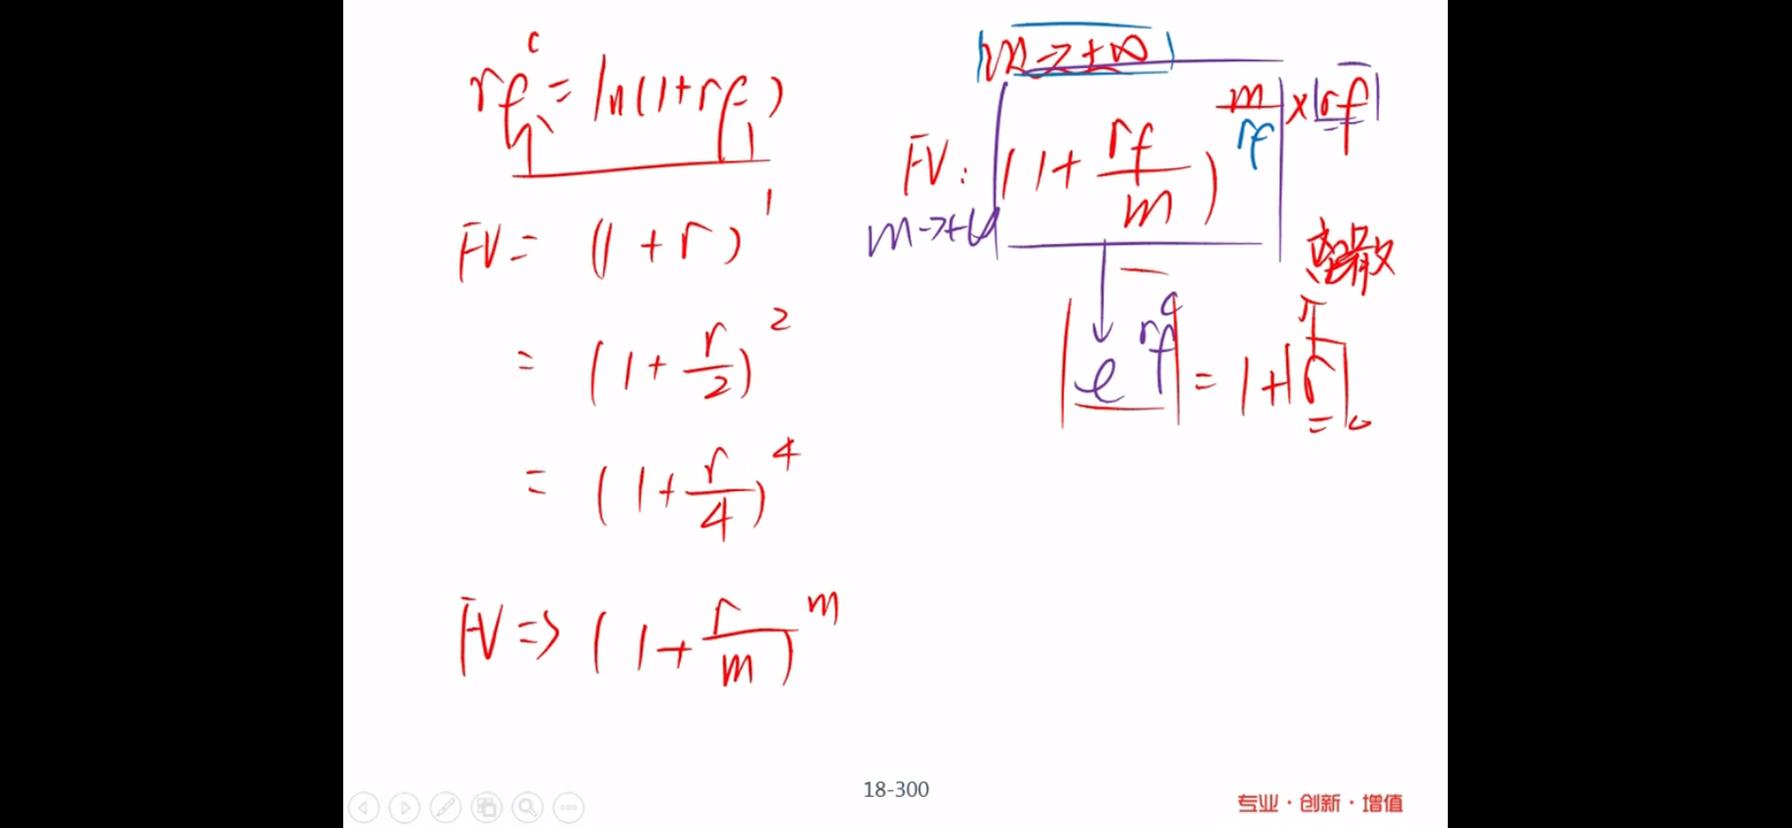 rf^c = ln(1+rf)
FV = (1+r)^1
= (1+r/2)^2
= (1+r/4)^4
FV => (1+r/m)^m
m→+∞
FV: (1+rf/m)^(m/rf) × rf
m→+∞
离散
e^(rf^c) = 1+r
18-300
专业·创新·增值